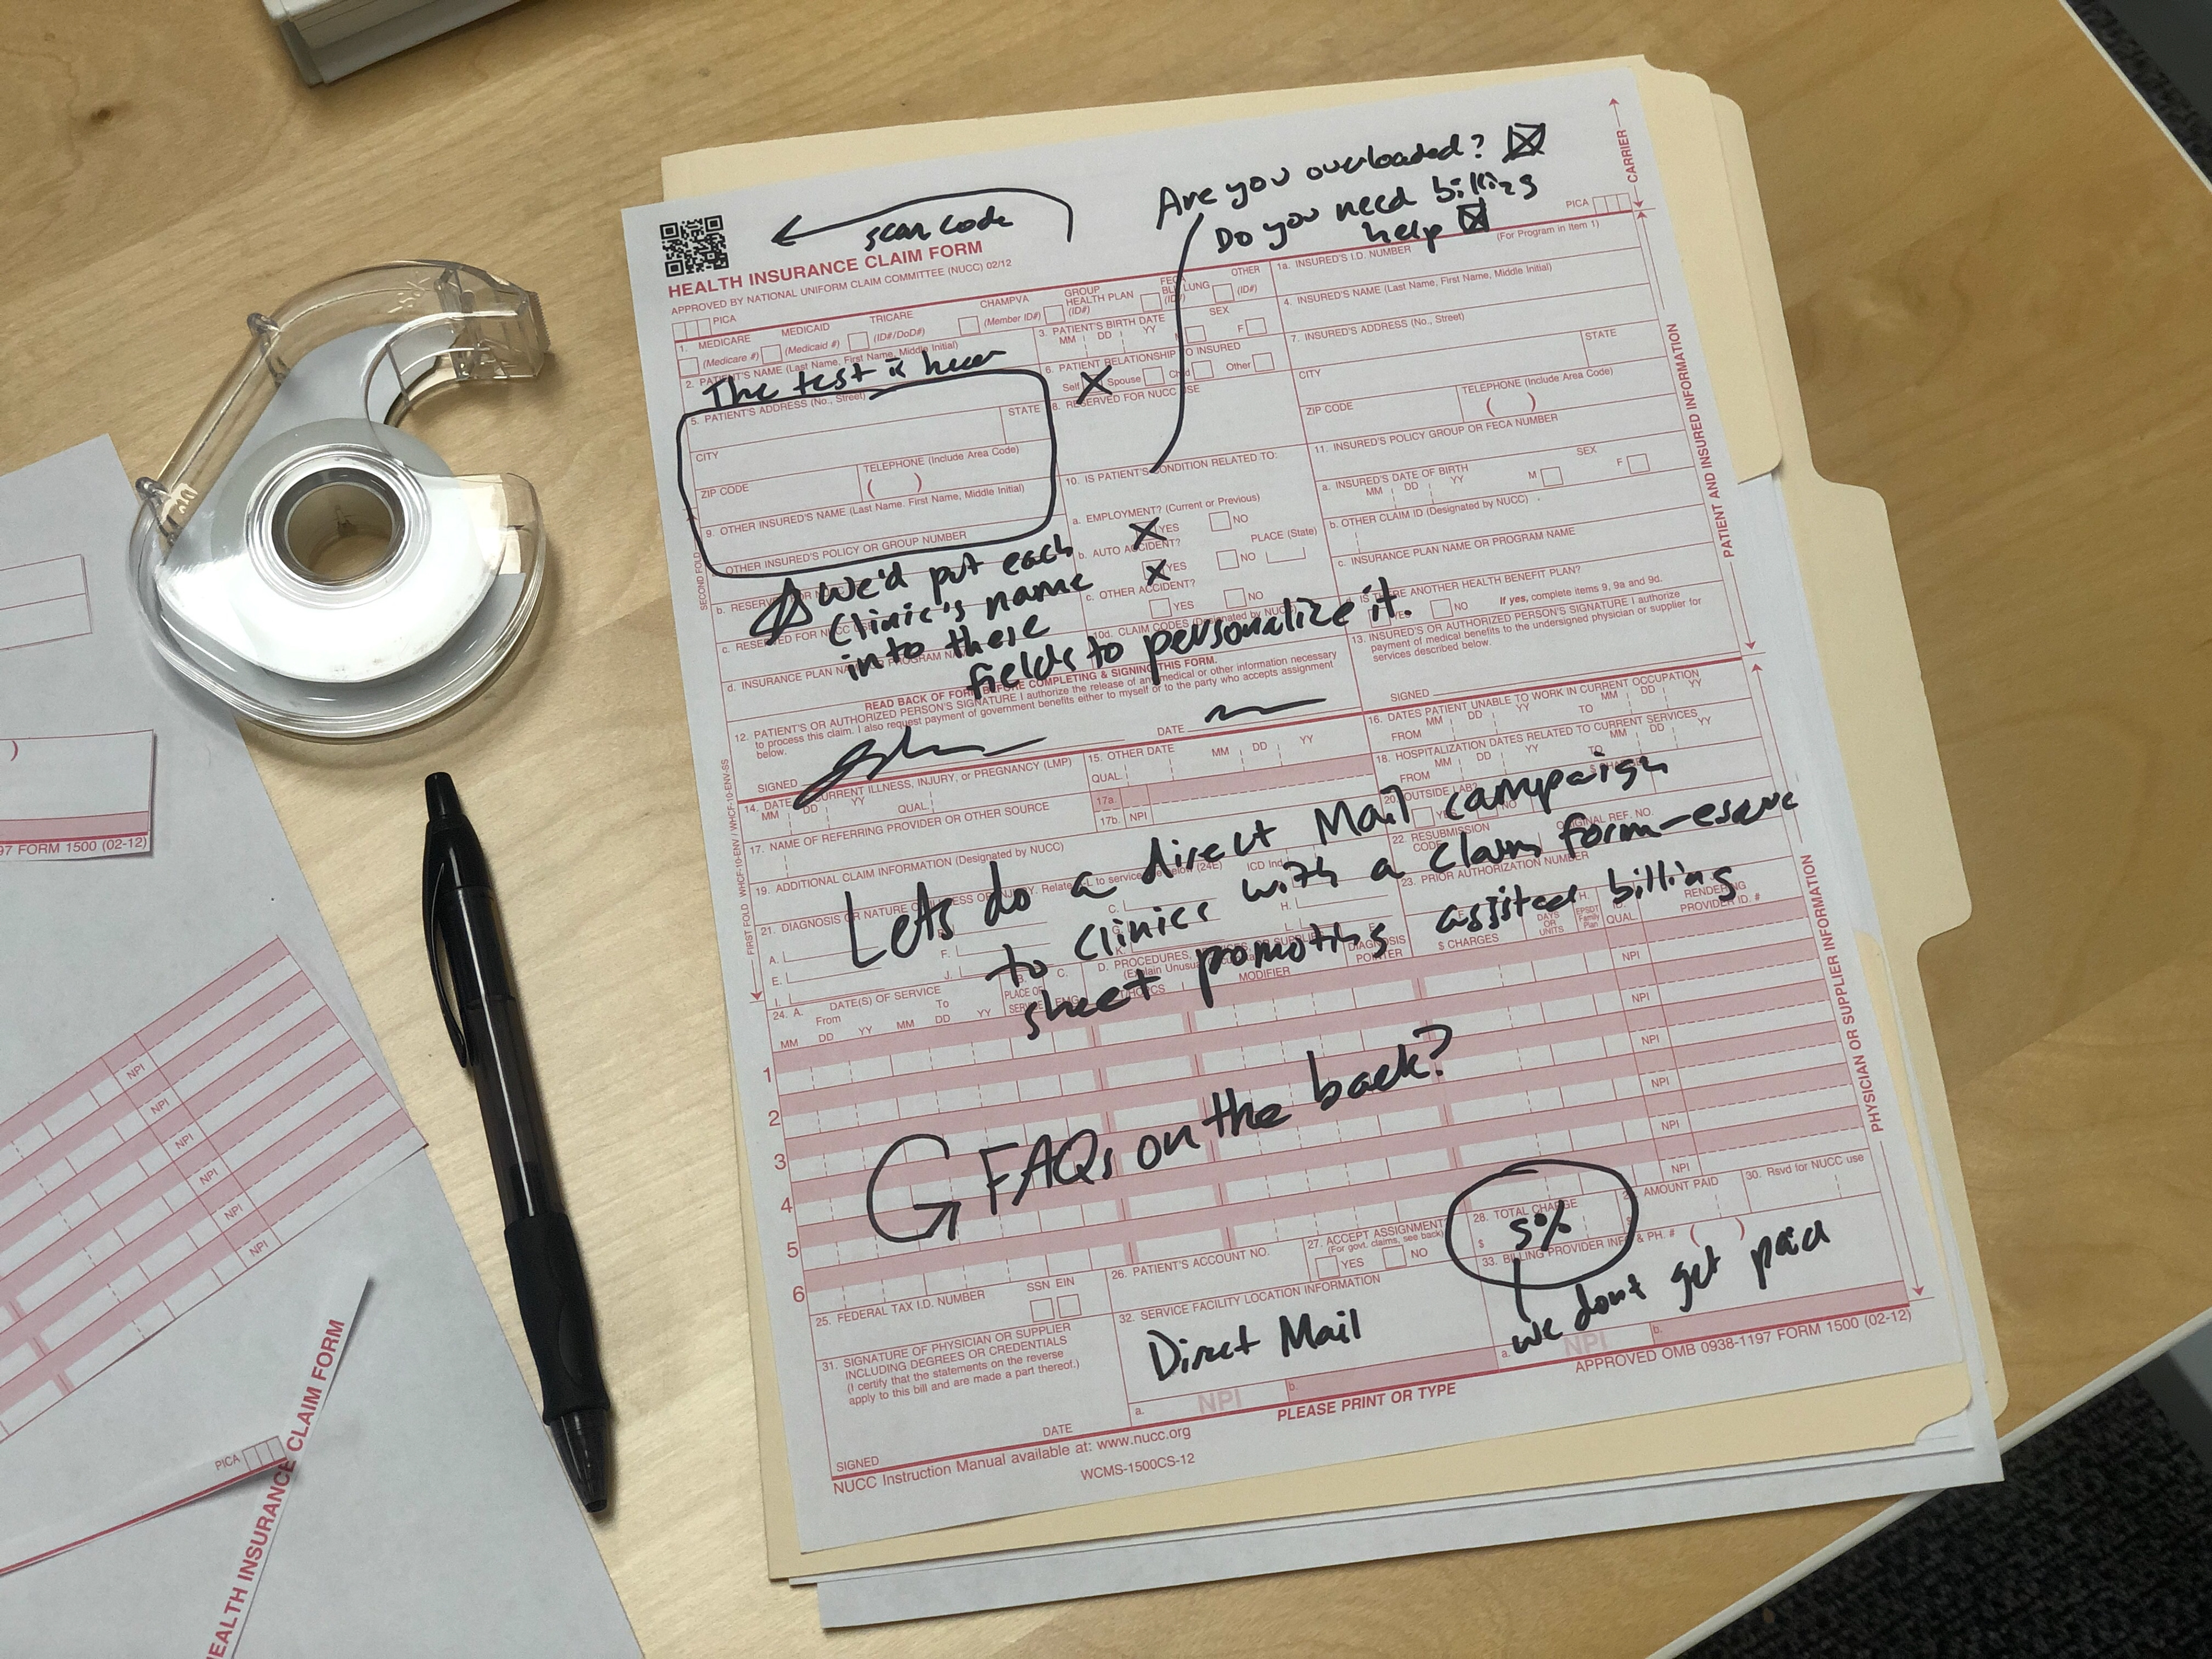 Are you overloaded? ☒
Do you need billing
help ☒
scan code
HEALTH INSURANCE CLAIM FORM
APPROVED BY NATIONAL UNIFORM CLAIM COMMITTEE (NUCC) 02/12
PICA
PICA
CARRIER
(For Program in Item 1)
1. MEDICARE MEDICAID TRICARE CHAMPVA GROUP HEALTH PLAN OTHER
(Medicare #) (Medicaid #) (ID#/DoD#) (Member ID#) (ID#) (ID#)
1a. INSURED'S I.D. NUMBER
2. PATIENT'S NAME (Last Name, First Name, Middle Initial)
3. PATIENT'S BIRTH DATE SEX
MM DD YY F
4. INSURED'S NAME (Last Name, First Name, Middle Initial)
The test is
5. PATIENT'S ADDRESS (No., Street)
6. PATIENT RELATIONSHIP TO INSURED
Self Spouse Child Other
7. INSURED'S ADDRESS (No., Street)
CITY STATE
8. RESERVED FOR NUCC USE
CITY STATE
ZIP CODE TELEPHONE (Include Area Code)
ZIP CODE TELEPHONE (Include Area Code)
9. OTHER INSURED'S NAME (Last Name, First Name, Middle Initial)
10. IS PATIENT'S CONDITION RELATED TO:
11. INSURED'S POLICY GROUP OR FECA NUMBER
OTHER INSURED'S POLICY OR GROUP NUMBER
a. EMPLOYMENT? (Current or Previous)
YES NO
a. INSURED'S DATE OF BIRTH SEX
MM DD YY M F
b. AUTO ACCIDENT? PLACE (State)
YES NO
b. OTHER CLAIM ID (Designated by NUCC)
c. OTHER ACCIDENT?
YES NO
c. INSURANCE PLAN NAME OR PROGRAM NAME
We'd put each
Clinic's name
into these
fields to personalize it.
d. INSURANCE PLAN
10d. CLAIM CODES (Designated by NUCC)
ANOTHER HEALTH BENEFIT PLAN?
NO If yes, complete items 9, 9a and 9d.
READ BACK OF FORM BEFORE COMPLETING & SIGNING THIS FORM.
12. PATIENT'S OR AUTHORIZED PERSON'S SIGNATURE I authorize the release of any medical or other information necessary
to process this claim. I also request payment of government benefits either to myself or to the party who accepts assignment
below.
SIGNED DATE
13. INSURED'S OR AUTHORIZED PERSON'S SIGNATURE I authorize
payment of medical benefits to the undersigned physician or supplier for
services described below.
SIGNED
PATIENT AND INSURED INFORMATION
14. DATE CURRENT ILLNESS, INJURY, or PREGNANCY (LMP)
MM DD YY QUAL.
15. OTHER DATE
QUAL. MM DD YY
16. DATES PATIENT UNABLE TO WORK IN CURRENT OCCUPATION
MM DD YY MM DD YY
FROM TO
17. NAME OF REFERRING PROVIDER OR OTHER SOURCE
17a.
17b. NPI
18. HOSPITALIZATION DATES RELATED TO CURRENT SERVICES
MM DD YY MM DD YY
FROM TO
19. ADDITIONAL CLAIM INFORMATION (Designated by NUCC)
20. OUTSIDE LAB?
Lets do a direct Mail campaign
to clinics with a claim form-esque
sheet promoting assisted billing
21. DIAGNOSIS OR NATURE OF ILLNESS OR INJURY. Relate A-L to service line below (24E) ICD Ind.
22. RESUBMISSION CODE ORIGINAL REF. NO.
23. PRIOR AUTHORIZATION NUMBER
24. A. DATE(S) OF SERVICE
From To
MM DD YY MM DD YY
PLACE OF SERVICE EMG
D. PROCEDURES,
MODIFIER
DIAGNOSIS POINTER
$ CHARGES
DAYS OR UNITS
EPSDT Family Plan
QUAL.
RENDERING
PROVIDER ID. #
1 NPI
2 NPI
3 NPI
4 NPI
5 NPI
6 NPI
FAQs on the back?
25. FEDERAL TAX I.D. NUMBER SSN EIN
26. PATIENT'S ACCOUNT NO.
27. ACCEPT ASSIGNMENT
(For govt. claims, see back)
YES NO
28. TOTAL CHARGE
$ 5%
AMOUNT PAID
30. Rsvd for NUCC use
31. SIGNATURE OF PHYSICIAN OR SUPPLIER
INCLUDING DEGREES OR CREDENTIALS
(I certify that the statements on the reverse
apply to this bill and are made a part thereof.)
SIGNED DATE
32. SERVICE FACILITY LOCATION INFORMATION
Direct Mail
a. NPI b.
33. BILLING PROVIDER INFO & PH. # ( )
we dont get paid
a. NPI b.
PHYSICIAN OR SUPPLIER INFORMATION
NUCC Instruction Manual available at: www.nucc.org
PLEASE PRINT OR TYPE
APPROVED OMB 0938-1197 FORM 1500 (02-12)
WCMS-1500CS-12
97 FORM 1500 (02-12)
NPI
NPI
NPI
NPI
NPI
NPI
PICA
HEALTH INSURANCE CLAIM FORM